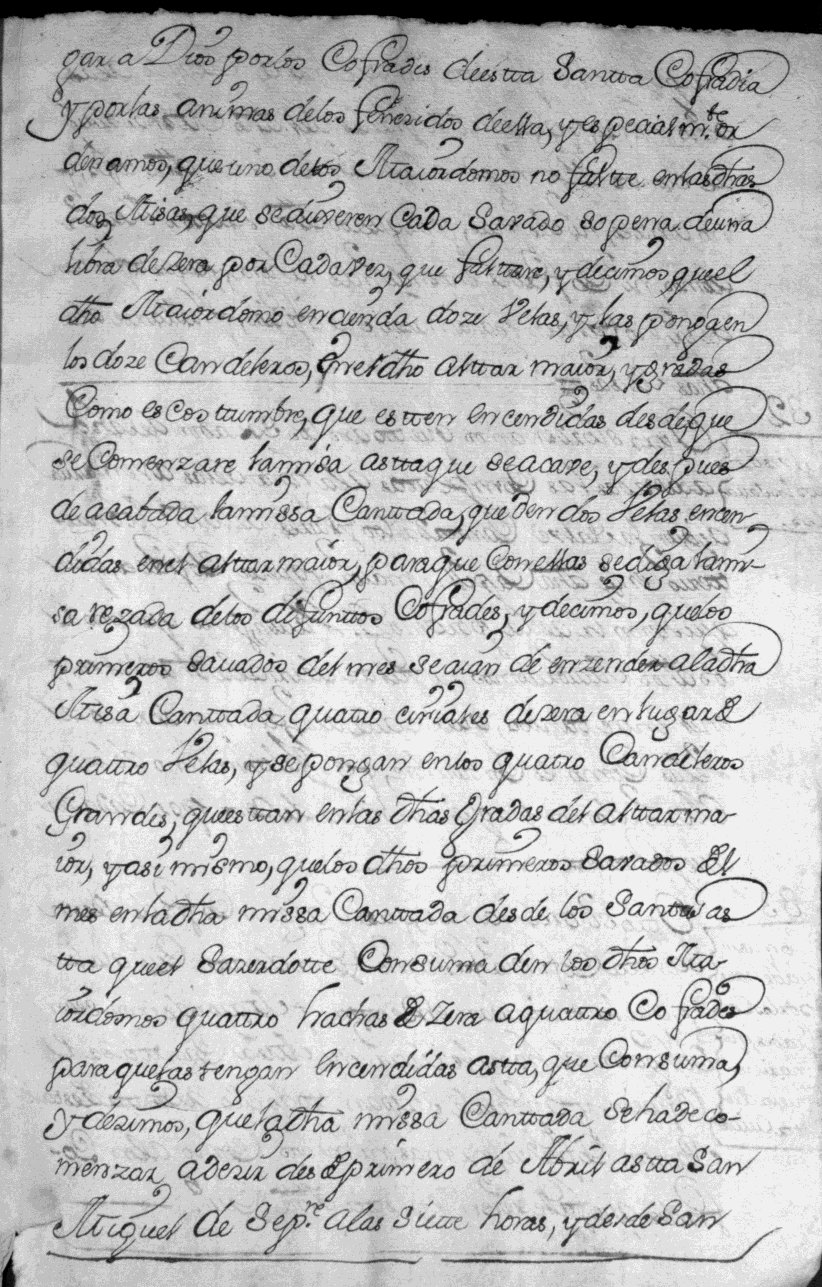 gar a Dios por los Cofrades deestta Santta Cofradia
y por las animas delos feneridos deella, y especialm.te or
denamos, que uno delos Maiordomos no faltte enlas dhas
dos Misas, que sedixeren Cada Savado so pena deuna
libra dezera por Cadavez, que faltare, y decimos, queel
dho Maiordomo encienda doze Velas, y las ponga en
los doze Candeleros, enel dho alttar maior, y gradas
Como es costtumbre, que estten encendidas desdeque
se Comenzare lamisa asttaque seacave, y despues
de acabada lamissa Canttada, queden dos Velas encen-
didas enel alttar maior, paraque Conellas sediga lami-
sa rezada delos difunttos Cofrades, y decimos, quelos
primeros savados del mes seaian de enzender aladha
Misa Canttada quatro ciriales dezera enlugar de
quattro Velas, y se pongan enlos quatro Candeleros
Grandes, queesttan enlas dhas Gradas del alttar ma-
ior, y asi mismo, quelos dhos primeros Savados del
mes enladha missa Canttada desde los Santtus as
tta queel Sazerdotte Consuma den los dhos Ma-
iordomos quattro hachas de zera aquattro Cofrades
paraquelas tengan encendidas astta, que Consuma,
y dezimos, queladha missa Canttada sehadeco-
menzar adezir desde primero de Abril astta San
Miguel de Sepre. alas Siette horas, y desde San